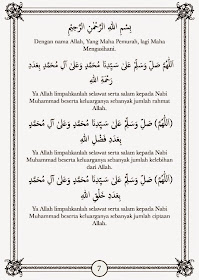 بِسْمِ اللَّهِ الرَّحْمَنِ الرَّحِيْمِ
Dengan nama Allah, Yang Maha Pemurah, lagi Maha
Mengasihani.
اَللَّهُمَّ صَلِّ وَسَلِّمْ عَلَى سَيِّدِنَا مُحَمَّدٍ وَعَلَى آلِ مُحَمَّدٍ بِعَدَدِ
رَحْمَةِ اللهِ
Ya Allah limpahkanlah selawat serta salam kepada Nabi
Muhammad beserta keluarganya sebanyak jumlah rahmat
Allah.
(اَللَّهُمَّ) صَلِّ وَسَلِّمْ عَلَى سَيِّدِنَا مُحَمَّدٍ وَعَلَى آلِ مُحَمَّدٍ
بِعَدَدِ فَضْلِ اللهِ
Ya Allah limpahkanlah selawat serta salam kepada Nabi
Muhammad beserta keluarganya sebanyak jumlah kelebihan
dari Allah.
(اَللَّهُمَّ) صَلِّ وَسَلِّمْ عَلَى سَيِّدِنَا مُحَمَّدٍ وَعَلَى آلِ مُحَمَّدٍ
بِعَدَدِ خَلْقِ اللهِ
Ya Allah limpahkanlah selawat serta salam kepada Nabi
Muhammad beserta keluarganya sebanyak jumlah ciptaan
Allah.
7